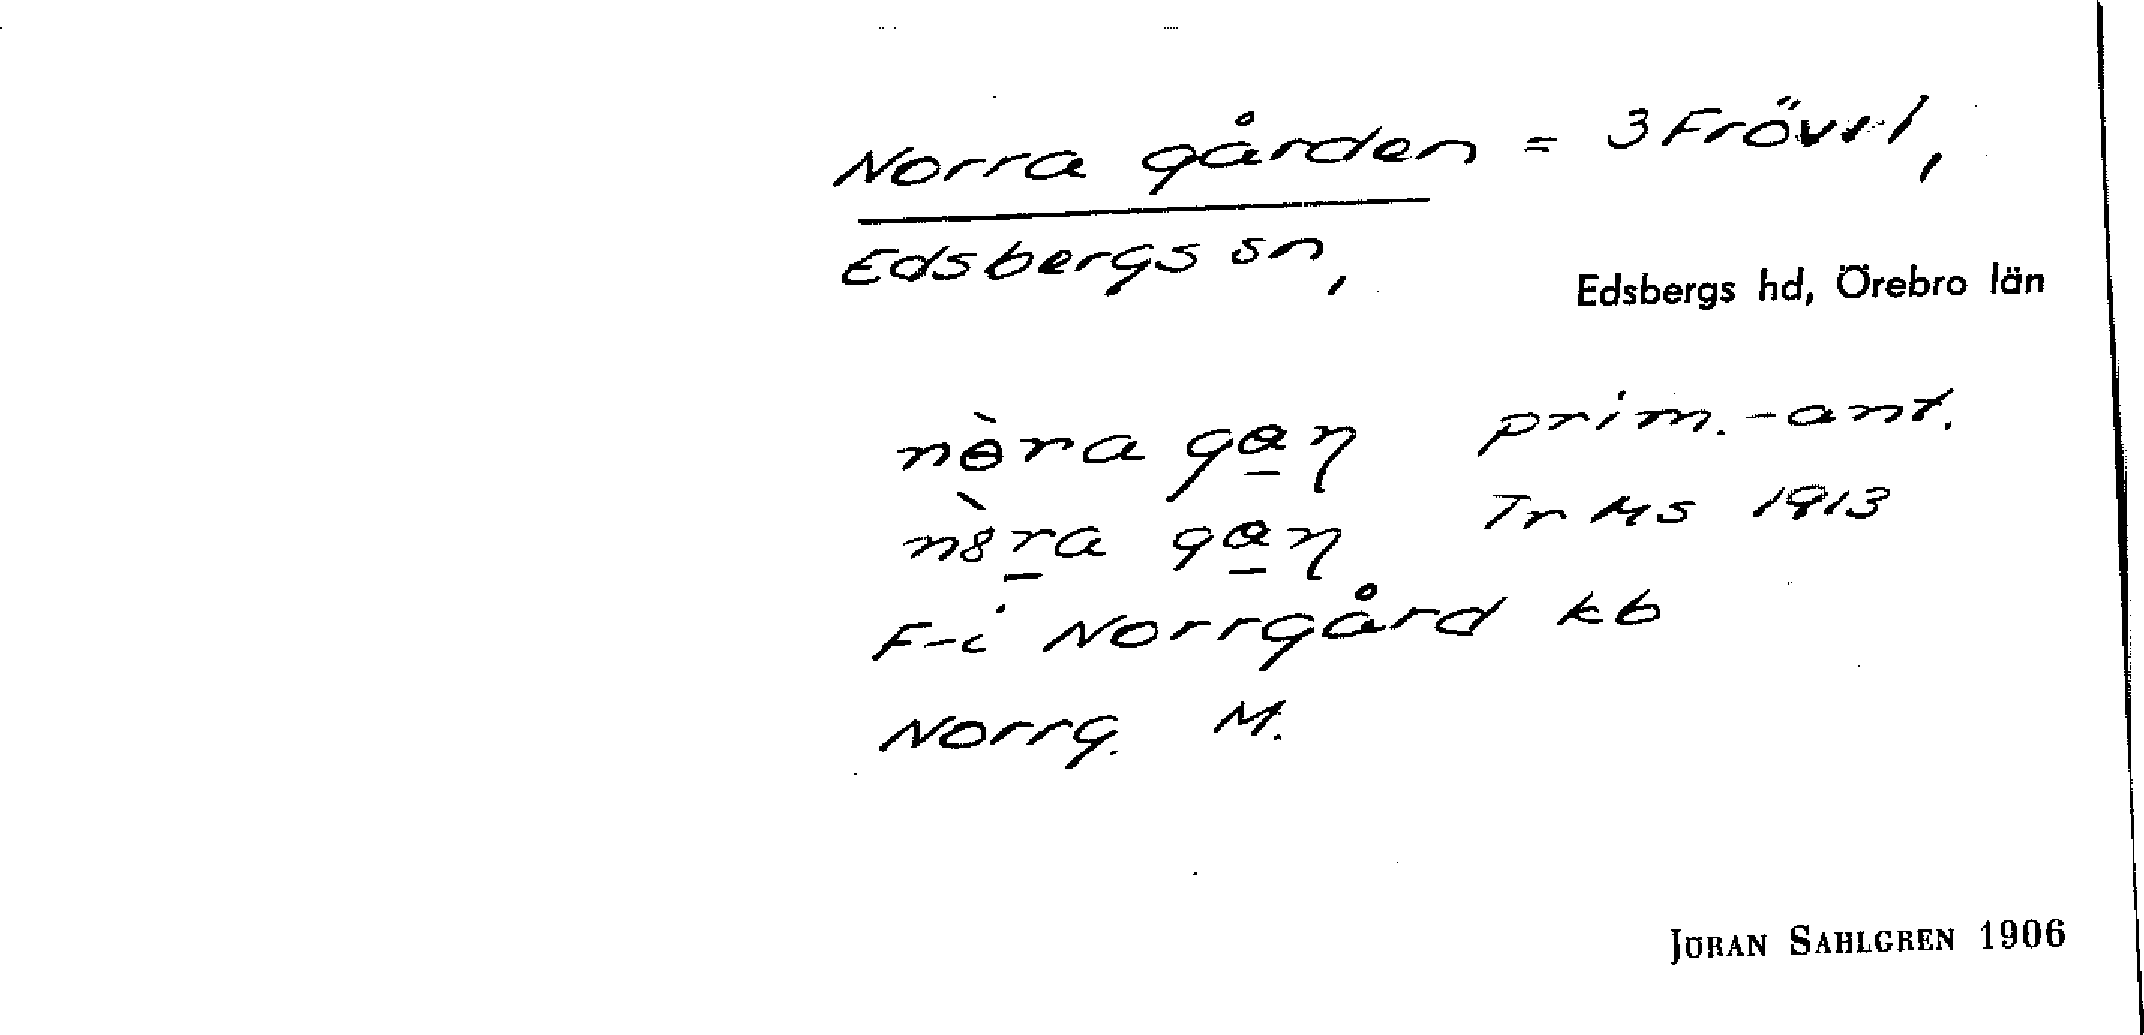 Norra gården = 3 Frövi,
Edsbergs sn,
Edsbergs hd, Örebro län
nɵ̀ra gan̡ prim.-ant.
n8̀ra gan̡ Tr MS 1913
F-i Norrgård kb
Norrg. M.
JÖRAN SAHLGREN 1906